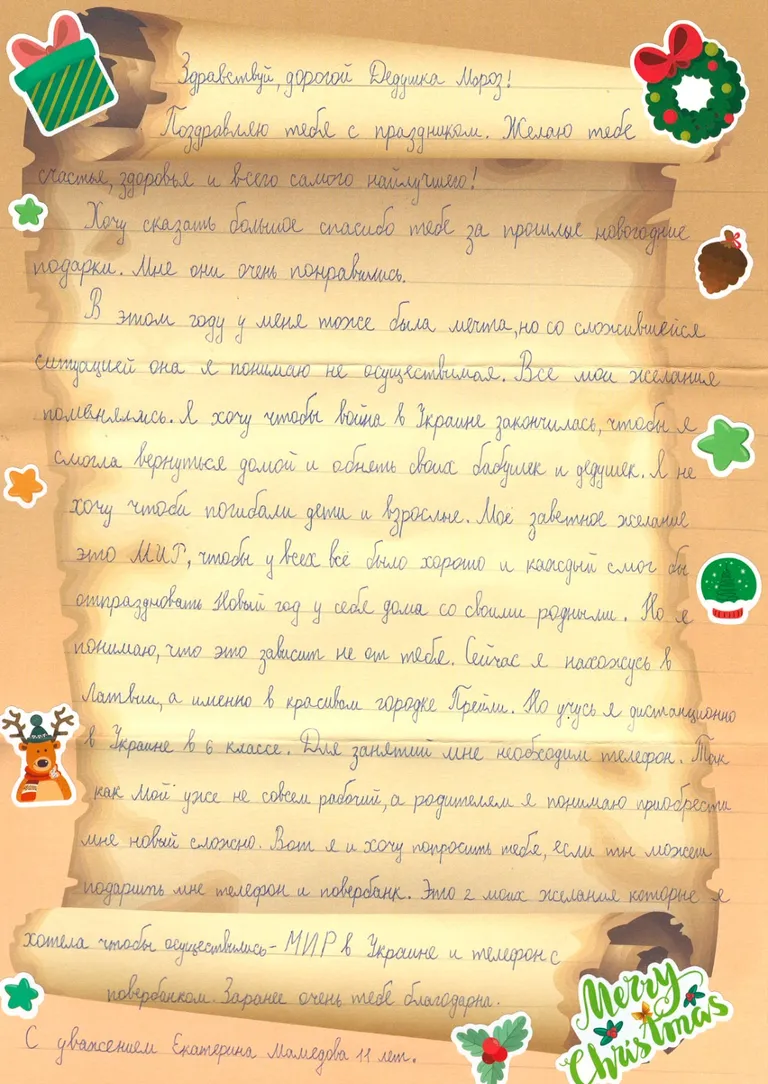 Здравствуй, дорогой Дедушка Мороз!
Поздравляю тебя с праздником. Желаю тебе
счастье, здоровья и всего самого найлучшего!
Хочу сказать большое спасибо тебе за прошлые новогодние
подарки. Мне они очень понравились.
В этом году у меня тоже была мечта, но со сложившейся
ситуацией она я понимаю не осуществимая. Все мои желания
поменялись. Я хочу чтобы война в Украине закончилась, чтобы я
смогла вернуться домой и обнять своих бабушек и дедушек. Я не
хочу чтоби погибали дети и взрослые. Моё заветное желание
это МИР, чтобы у всех всё было хорошо и каждый смог бы
отпраздновать Новый год у себя дома со своими родными. Но я
понимаю, что это зависит не от тебя. Сейчас я нахожусь в
Латвии, а именно в красивом городке Прейли. Но учусь я дистанционно
в Украине в 6 классе. Для занятий мне необходим телефон. Так
как мой уже не совсем рабочий, а родителям я понимаю приобрести
мне новый сложно. Вот я и хочу попросить тебя, если ты можеш
подарить мне телефон и повербанк. Это 2 моих желания которые я
хотела чтобы осуществились - МИР в Украине и телефон с
повербанком. Заранее очень тебе благодарна.
С уважением Екатерина Мамедова 11 лет.
Merry
Christmas